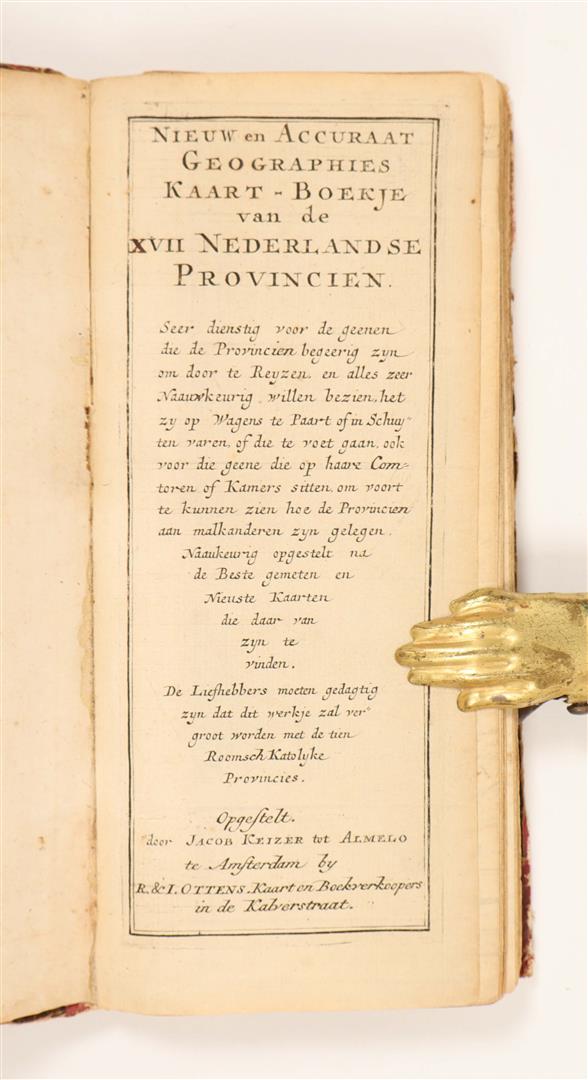 NIEUW en ACCURAAT
GEOGRAPHIES
KAART - BOEKJE
van de
XVII NEDERLANDSE
PROVINCIEN.
Seer dienstig voor de geenen
die de Provincien begeerig zyn
om door te Reyzen, en alles zeer
Naauwkeurig, willen bezien, het
zy op Wagens te Paart of in Schuy=
ten varen, of die te voet gaan, ook
voor die geene die op haare Com=
toren of Kamers sitten, om voort
te kunnen zien hoe de Provincien
aan malkanderen zyn gelegen.
Naaukeurig opgestelt na
de Beste gemeten en
Nieuste Kaarten
die daar van
zyn te
vinden.
De Liefhebbers moeten gedagtig
zyn dat dit werkje zal ver=
groot worden met de tien
Roomsch Katolyke
Provincies.
Opgestelt.
door JACOB KEIZER tot ALMELO
te Amsterdam by
R. & I. OTTENS. Kaart en Boekverkoopers
in de Kalverstraat.